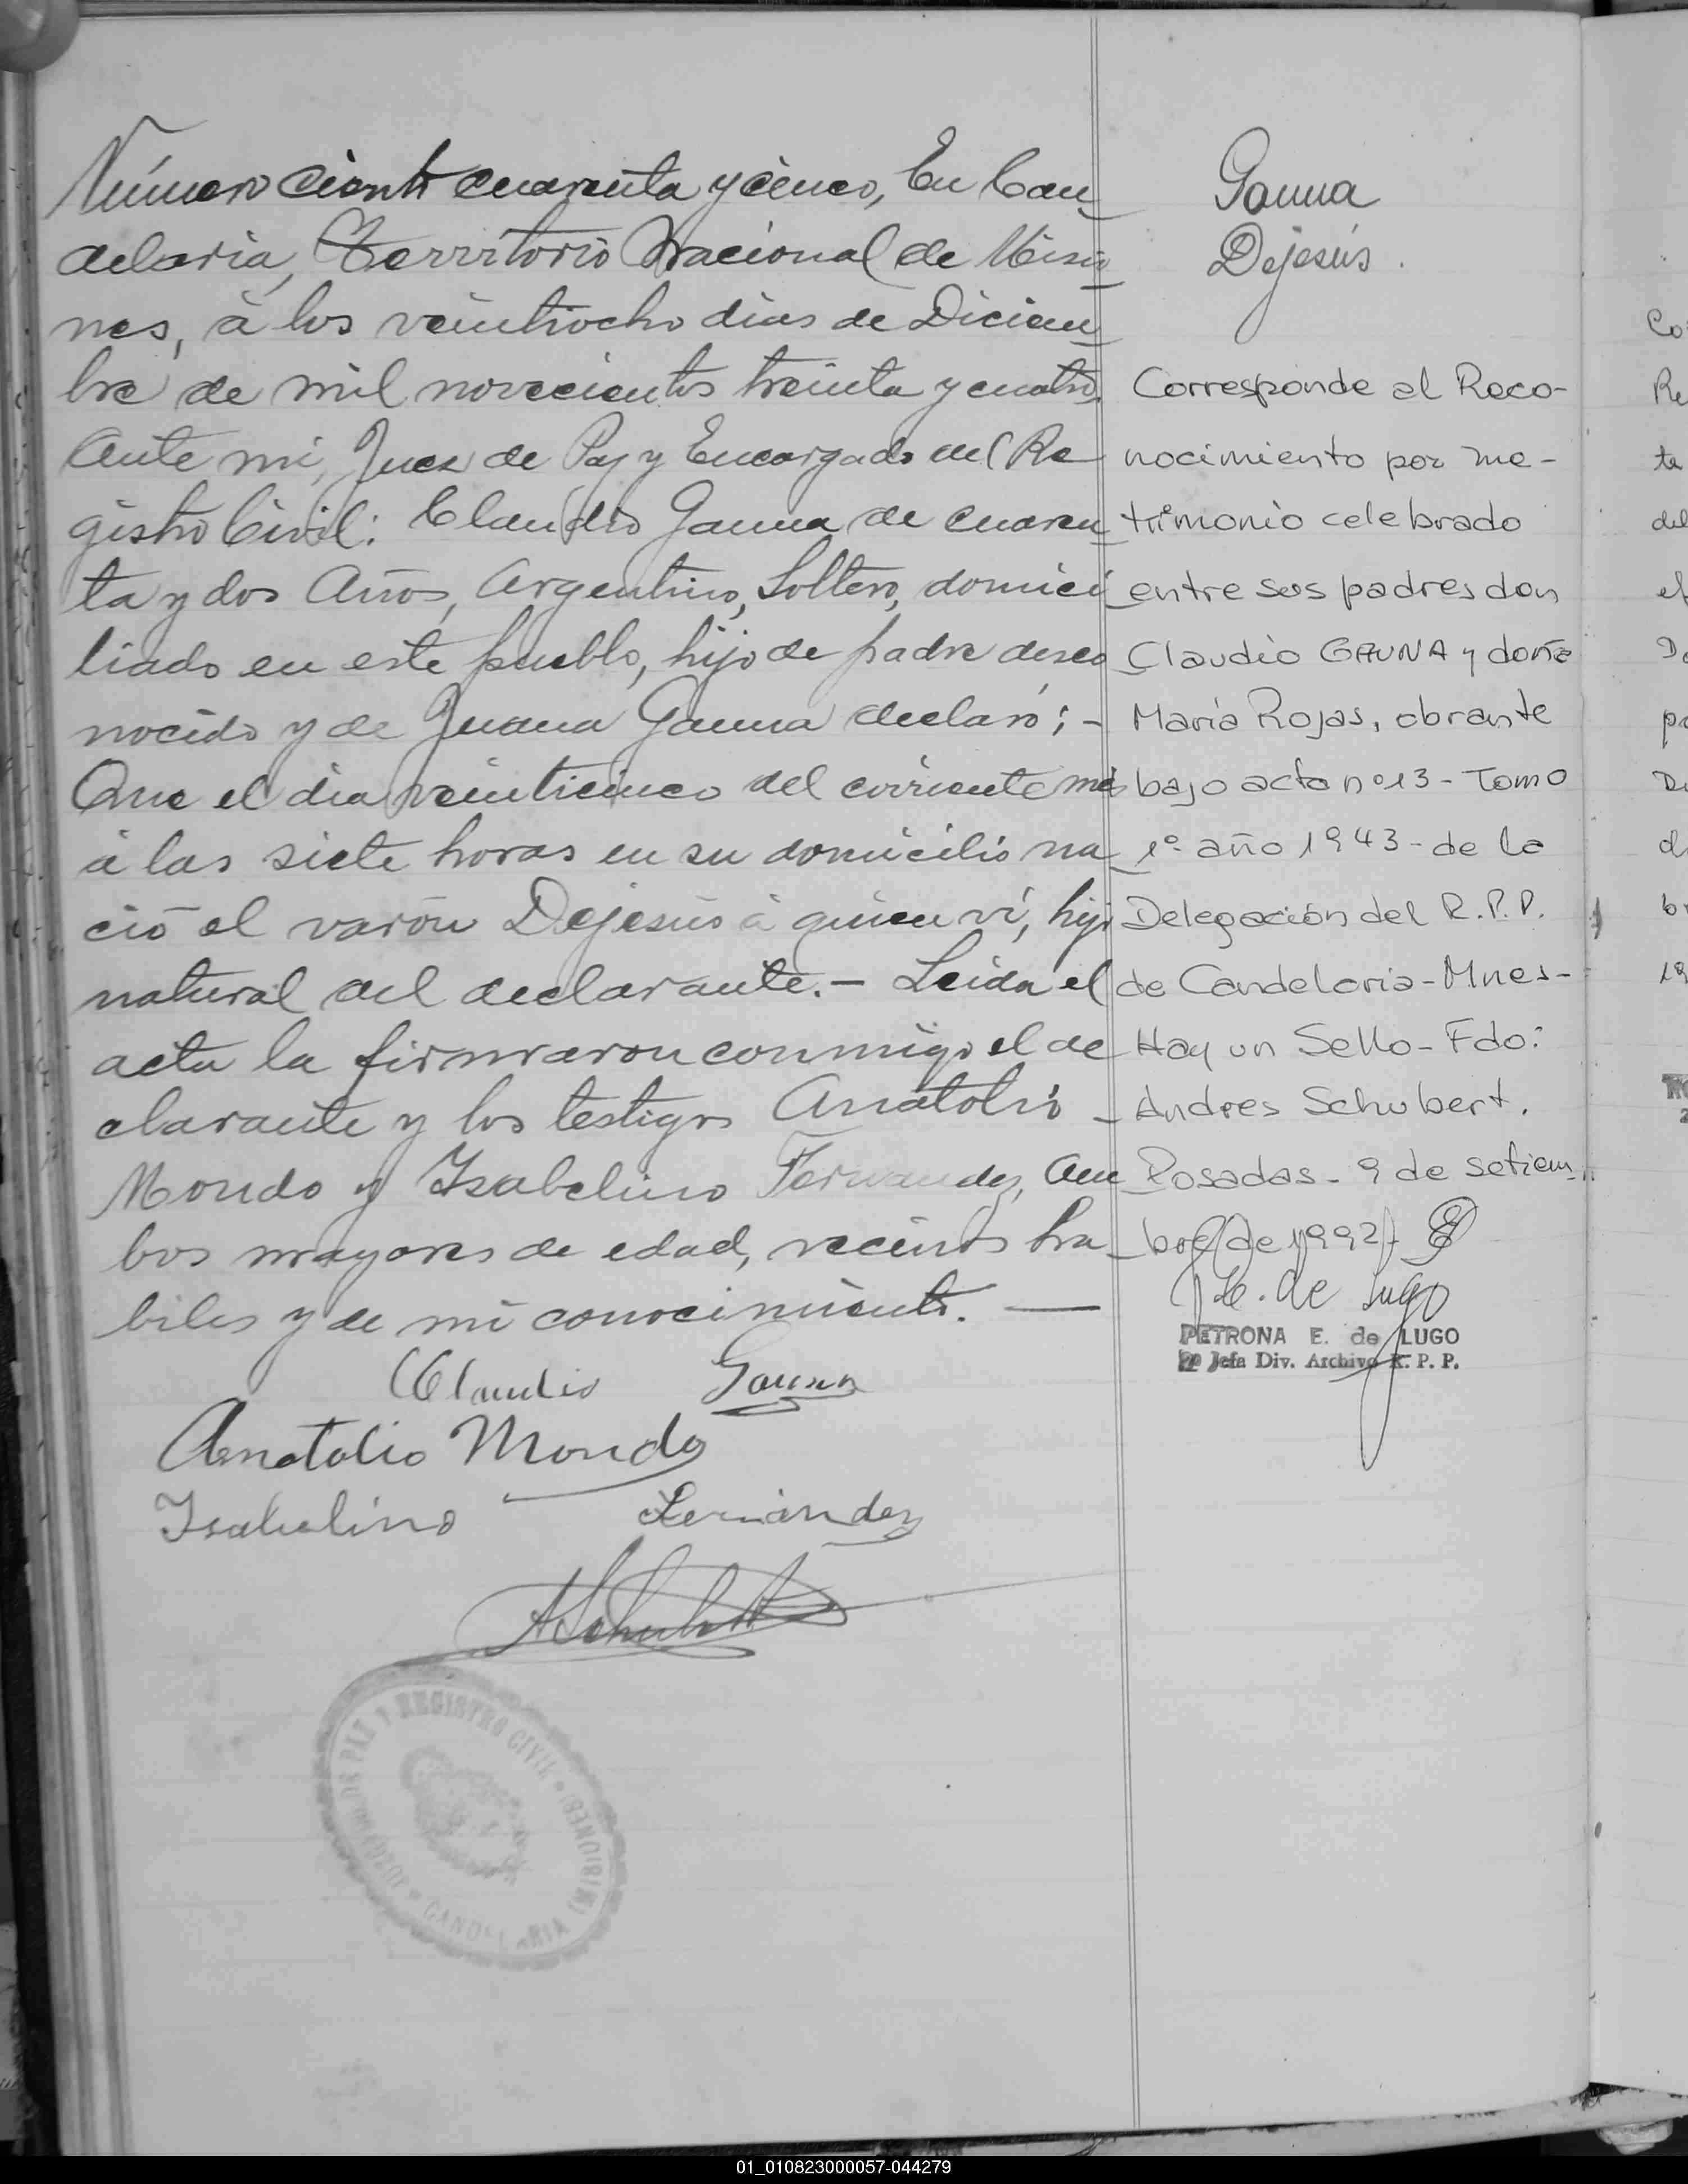 Número Ciento cuarenta y cinco, En Can_
delaria, Territorio Nacional de Misio_
nes, á los veintiocho dias de Diciem_
bre de mil novecientos treinta y cuatro,
Ante mi, Juez de Paz y Encargado del Re_
gistro Civil: Claudio Gauna de cuaren_
ta y dos Años, Argentino, Soltero, domici_
liado en este pueblo, hijo de padre desco_
nocido y de Juana Gauna declaró; -
Que el dia veinticinco del corriente mes
á las siete horas en su domicilio na_
ció el varón Dejesús á quien ví, hijo
natural del declarante. - Leida el
acta la firmaron conmigo el de_
clarante y los testigos Anatolio _
Mondo y Isabelino Fernandez, Am_
bos mayores de edad, vecinos ha_
biles y de mi conocimiento. —
Claudio Gauna
Anatolio Mondo
Isabelino Fernández
ASchubert
JUZGADO DE PAZ Y REGISTRO CIVIL
CANDELARIA (MISIONES)
Gauna
Dejesús.
Corresponde al Reco-
nocimiento por ma-
trimonio celebrado
entre sus padres don
Claudio GAUNA y doña
María Rojas, obrante
bajo acta nº 13 - Tomo
1º año 1943 - de la
Delegación del R.P.P.
de Candelaria - Mnes -
Hay un Sello - Fdo:
Andres Schubert.
Posadas - 9 de setiem_
bre de 1992 -
E. de Lugo
PETRONA E. de LUGO
2º Jefa Div. Archivo R. P. P.
01_010823000057-044279